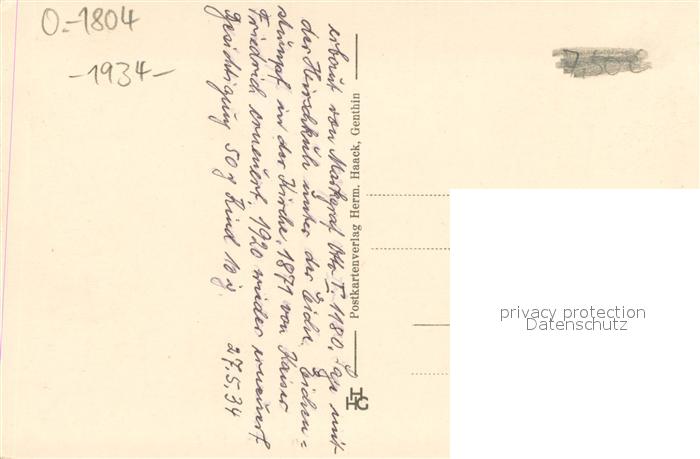 O.-1804
-1934-
erbaut von Markgraf Otto I. 1180, Sage mit
der Hirschkuh unter der Eiche, Eichen=
stumpf in der Kirche, 1871 von Kaiser
Friedrich erneuert. 1920 wieder erneuert.
Besichtigung 50 ₰ Kind 10 ₰.
27.5.34
Postkartenverlag Herm. Haack, Genthin
privacy protection
Datenschutz